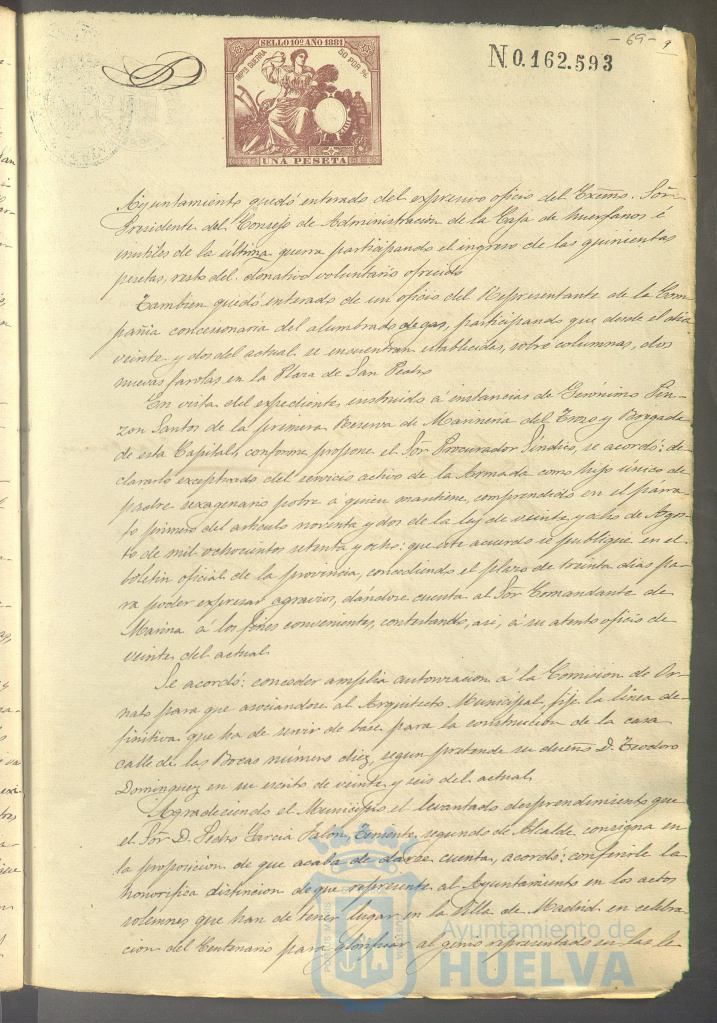 - 69 - 9
SELLO 10º AÑO 1881
IMPTO GUERRA
50 POR %
UNA PESETA
N 0.162.593
Ayuntamiento quedó enterado del expresivo oficio del Excmo. Señor
Presidente del Consejo de Administración de la Caja de huerfanos é
inutiles de la última guerra participando el ingreso de las quinientas
pesetas, resto del donativo voluntario ofrecido
Tambien quedó enterado de un oficio del Representante de la Com
pañia concesionaria del alumbrado de gas, participando que desde el dia
veinte y dos del actual se encuentran establecidas, sobre columnas, dos
nuevas farolas en la Plaza de San Pedro
En vista del expediente, instruido á instancias de Gerónimo Pin
zon Santos de la primera Reserva de Marineria del Trozo y Brigada
de esta Capital, conforme propone el Sor Procurador Síndico, se acordó: de
clararlo exceptuado del servicio activo de la Armada como hijo único de
padre sexagenario pobre á quien mantiene, comprendido en el párra
fo primero del artículo noventa y dos de la ley de veinte y ocho de Agos
to de mil ochocientos setenta y ocho: que este acuerdo se publique en el
boletin oficial de la provincia, concediendo el plazo de treinta dias pa
ra poder expresar agravios, dándose cuenta al Sor Comandante de
Marina á los fines convenientes, contestando, asi, á su atento oficio de
veinte del actual
Se acordó: conceder amplia autorizacion á la Comision de Or
nato para que asociandose al Arquitecto Municipal, fije la línea de
finitiva que ha de servir de base para la construccion de la casa
calle de las Bocas número diez, segun pretende su dueño D. Teodoro
Dominguez en su escrito de veinte y seis del actual
Agradeciendo el Municipio el levantado desprendimiento que
el Sor D. Pedro Garcia Jalon, Teniente segundo de Alcalde, consigna en
la proposicion de que acaba de darse cuenta, acordó: conferirle la
honorifica distincion de que represente al Ayuntamiento en los actos
solemnes que han de tener lugar en la Villa de Madrid en celebra
cion del Centenario para glorificar al genio representado en las le
Ayuntamiento de
HUELVA